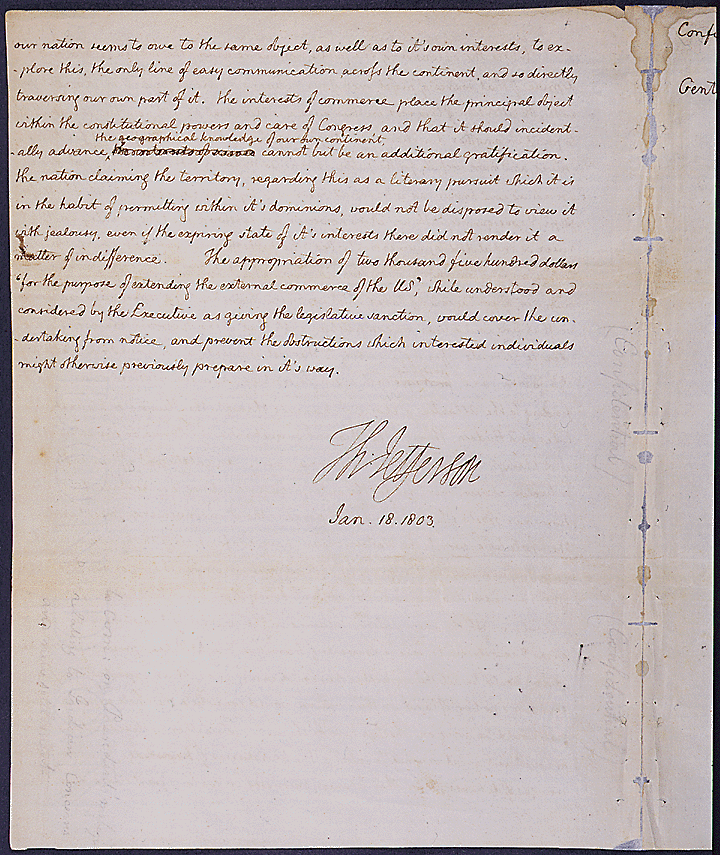 our nation seems to owe to the same object, as well as to it's own interests, to ex-
-plore this, the only line of easy communication across the continent, and so directly
traversing our own part of it. the interests of commerce place the principal object
within the constitutional powers and care of Congress, and that it should incident-
the geographical knowledge of our own continent,
-ally advance, cannot but be an additional gratification.
the nation claiming the territory, regarding this as a literary pursuit which it is
in the habit of permitting within it's dominions, would not be disposed to view it
with jealousy, even if the expiring state of it's interests there did not render it a
matter of indifference. The appropriation of two thousand five hundred dollars
"for the purpose of extending the external commerce of the US", while understood and
considered by the Executive as giving the legislative sanction, would cover the un-
-dertaking from notice, and prevent the obstructions which interested individuals
might otherwise previously prepare in it's way.
Th. Jefferson
Jan. 18. 1803.
Conf
Gent
(Confidential)
(Confidential)